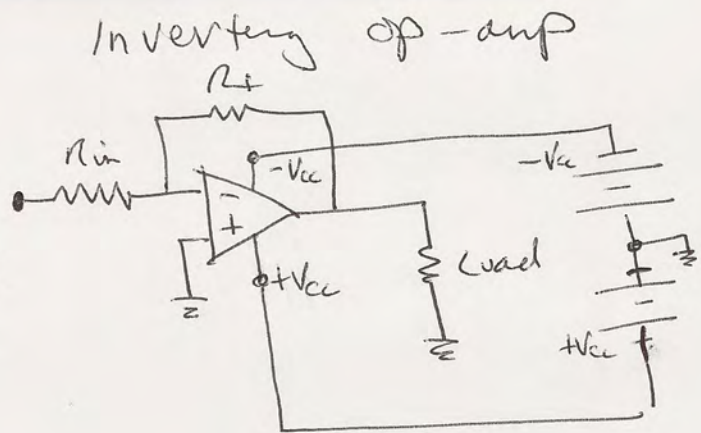 Inverting op-amp
Rf
Rin
-Vcc
-Vcc
-
+
+Vcc
Load
+Vcc +